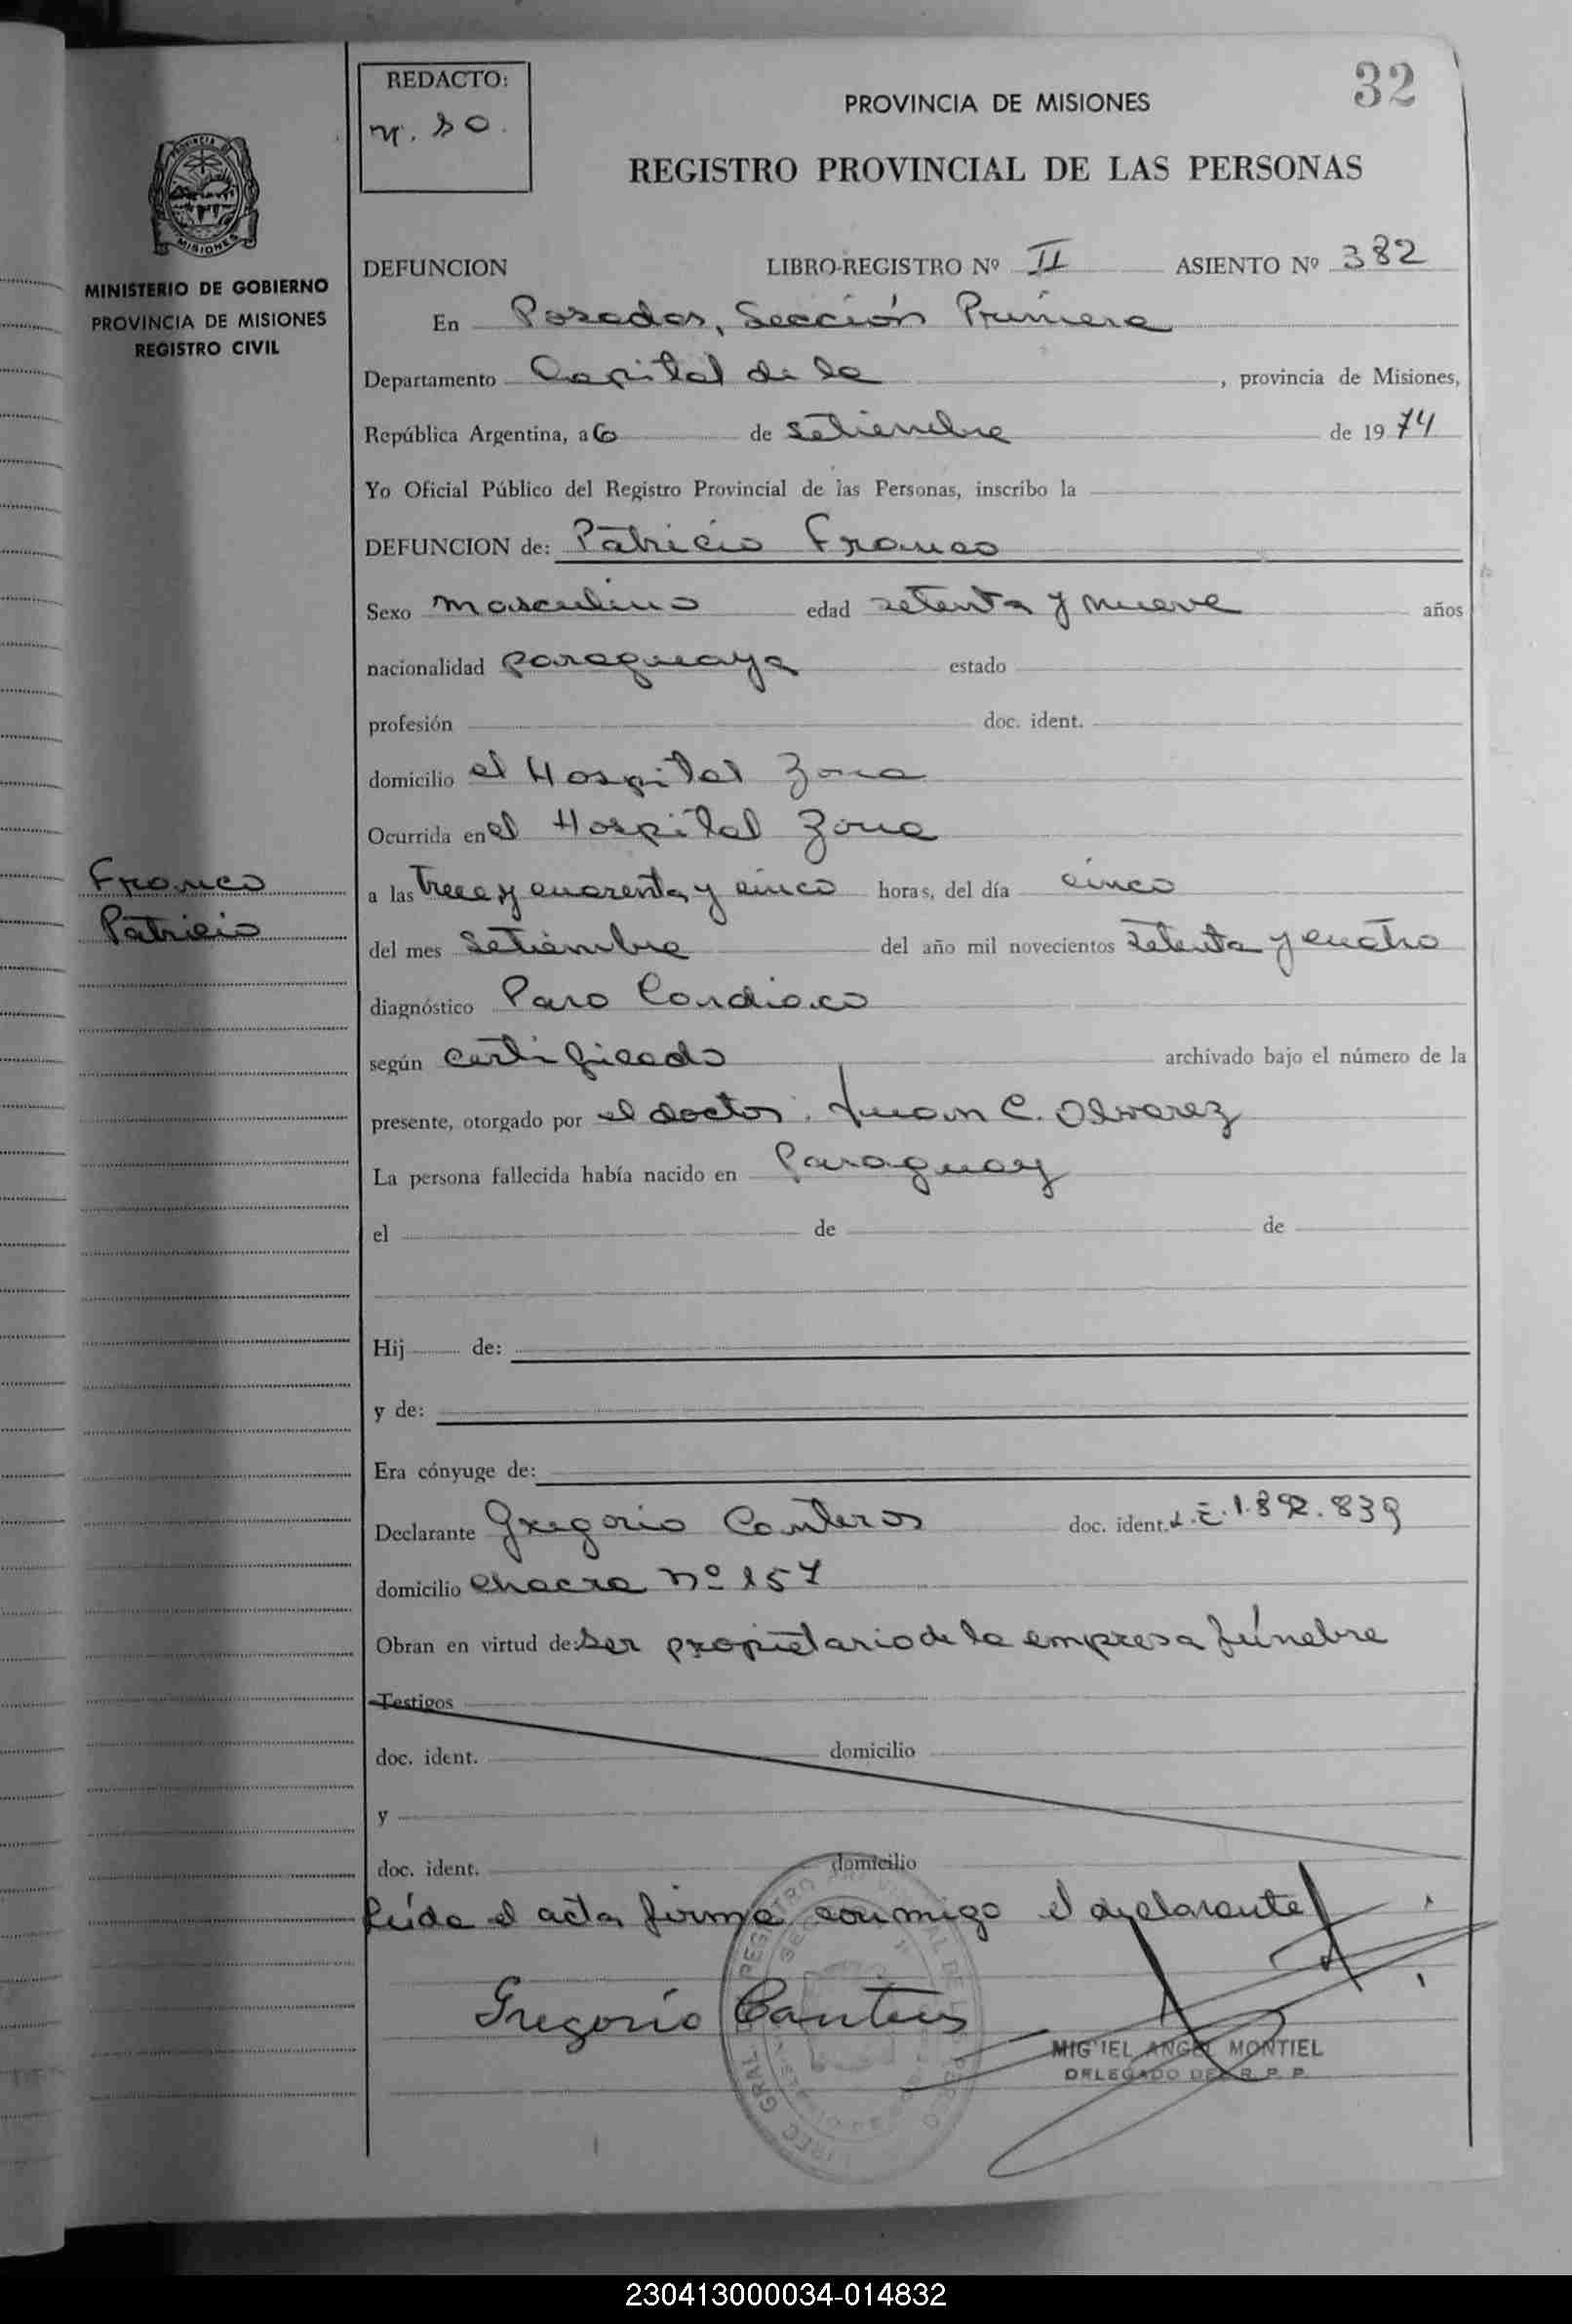 32
REDACTO:
PROVINCIA DE MISIONES
REGISTRO PROVINCIAL DE LAS PERSONAS
PROVINCIA DE
MISIONES
MINISTERIO DE GOBIERNO
PROVINCIA DE MISIONES
REGISTRO CIVIL
DEFUNCION LIBRO-REGISTRO Nº II ASIENTO Nº 382
En Posadas, Sección Primera
Departamento Capital de la , provincia de Misiones,
República Argentina, a 6 de Setiembre de 1974
Yo Oficial Público del Registro Provincial de las Personas, inscribo la
DEFUNCION de: Patricio Franco
Sexo masculino edad setenta y nueve años
nacionalidad paraguaya estado
profesión doc. ident.
domicilio el Hospital Zona
Ocurrida en el Hospital Zona
Franco
Patricio
a las Trece y cuarenta y cinco horas, del día cinco
del mes Setiembre del año mil novecientos setenta y cuatro
diagnóstico Paro Cardiaco
según certificado archivado bajo el número de la
presente, otorgado por el doctor. Juan C. Alvarez
La persona fallecida había nacido en Paraguay
el de de
Hij de:
y de:
Era cónyuge de:
Declarante Gregorio Canteros doc. ident. L.E. 1.892.839
domicilio chacra Nº 157
Obran en virtud de: Ser propietario de la empresa fúnebre
Testigos
doc. ident. domicilio
y
doc. ident. domicilio
Leída el acta firma conmigo el declarante
Gregorio Canteros
MIGUEL ANGEL MONTIEL
DELEGADO DEL R. P. P.
230413000034-014832